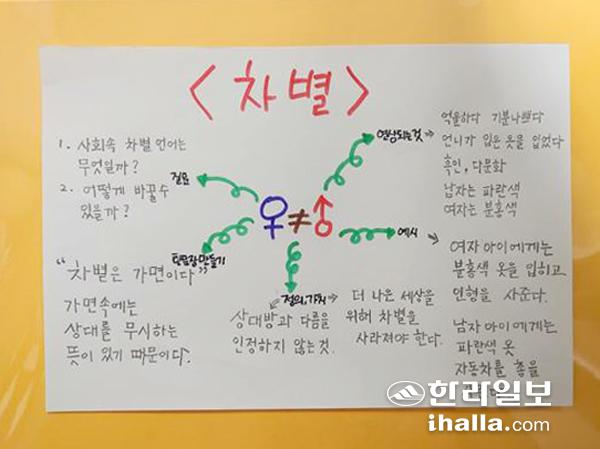 <차별>
1. 사회속 차별 언어는
무엇일까?
2. 어떻게 바꿀수
있을까?
질문
연상되는것
억울하다 기분나쁘다
언니가 입은 옷을 입었다
흑인, 다문화
남자는 파란색
여자는 분홍색
♀≠♂
예시
여자 아이에게는
분홍색 옷을 입히고
인형을 사준다.
남자 아이에게는
파란색 옷
자동차를 총을
만들기
"차별은 가면이다"
가면속에는
상대를 무시하는
뜻이 있기 때문이다.
정의, 가치
상대방과 다름을
인정하지 않는것.
더 나은 세상을
위해 차별을
사라져야 한다.
한라일보
ihalla.com